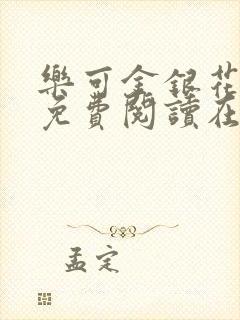 樂可金銀花
免費閱讀在
孟定